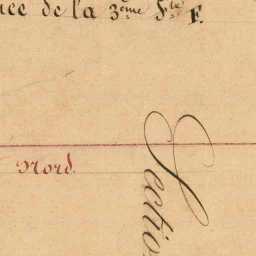 de la 3ème Fle F.
Nord.
Sectio